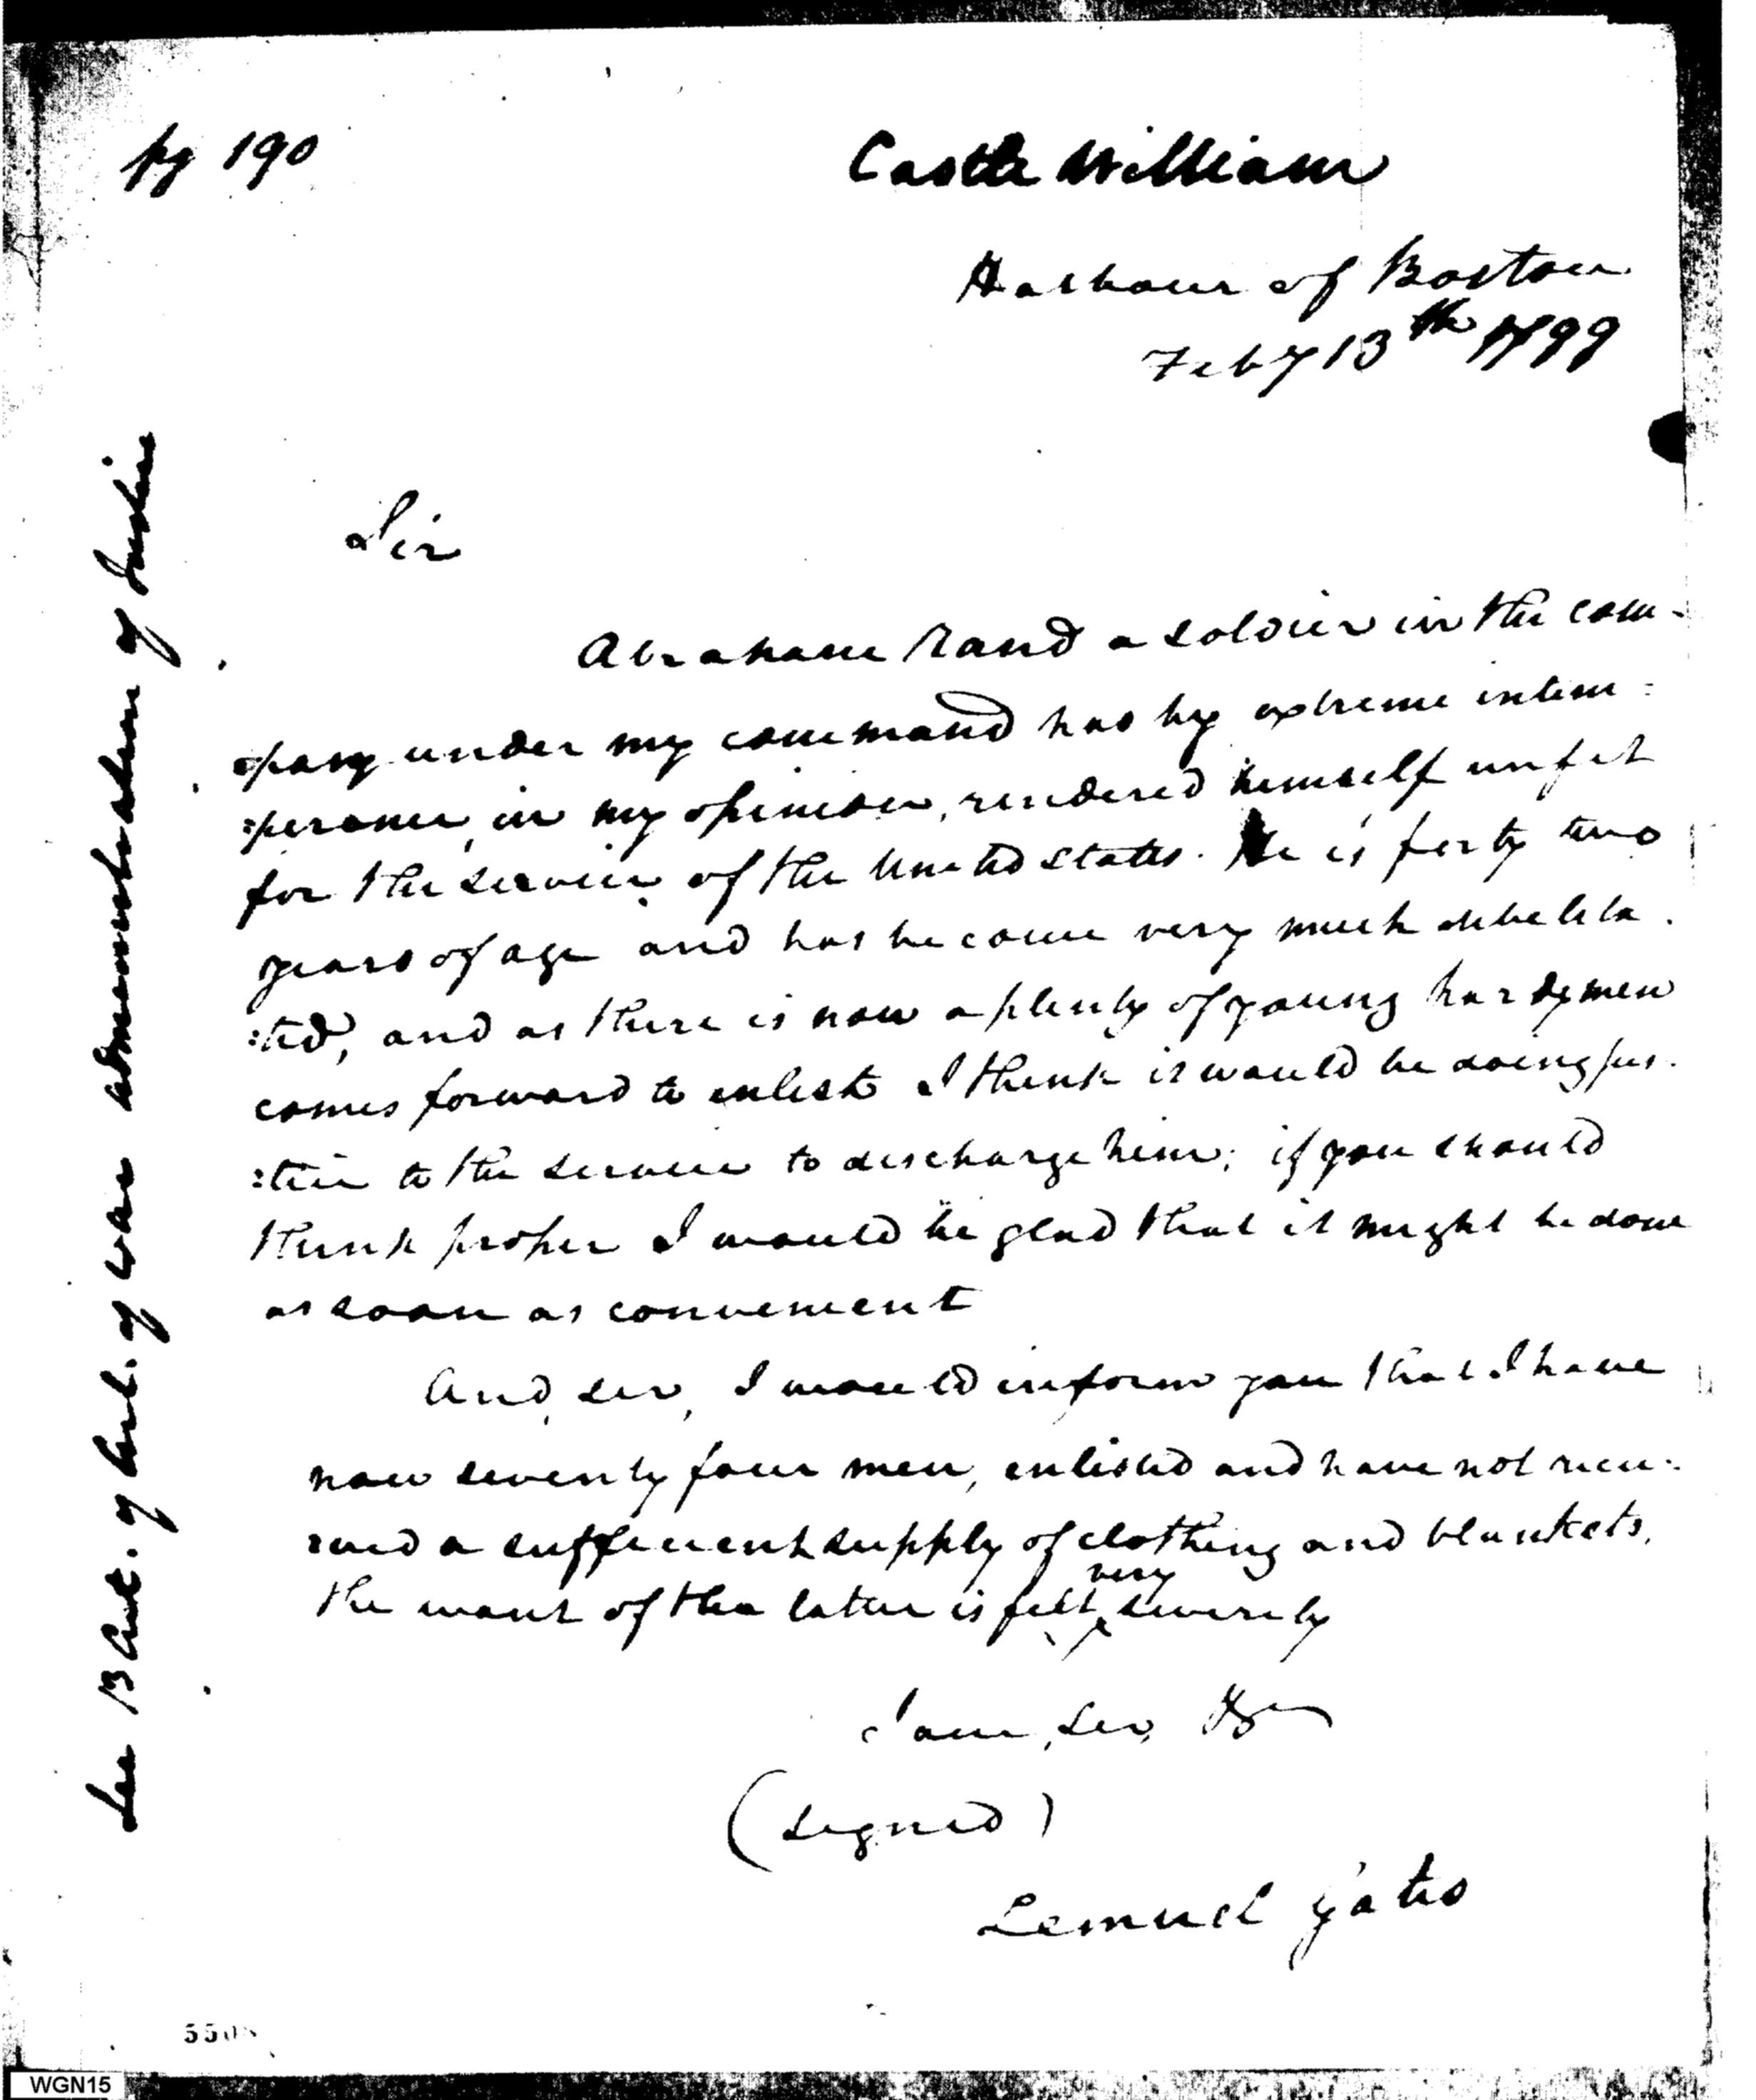 pg 190
Castle William
Harbour of Boston
Feby 13th 1799
Sir
Abraham Rand a soldier in the com-
pany under my command has by extreme intem=
:perance, in my opinion, rendered himself unfit
for the service of the United States. He is forty two
years of age and has become very much debelita.
:ted, and as there is now a plenty of young hardy men
comes forward to enlist I think it would be doing jus.
:tice to the service to discharge him; if you should
think proper I would be glad that it might be done
as soon as convenient
And, sir, I would inform you that I have
now seventy four men, enlisted and have not recei:
:ved a sufficient supply of clothing and blankets,
very
the want of the latter is felt severely
I am, Sir, &c
(signed)
Lemuel Gates
See 13 Art. of Art. of war administration of Justice
550
WGN15